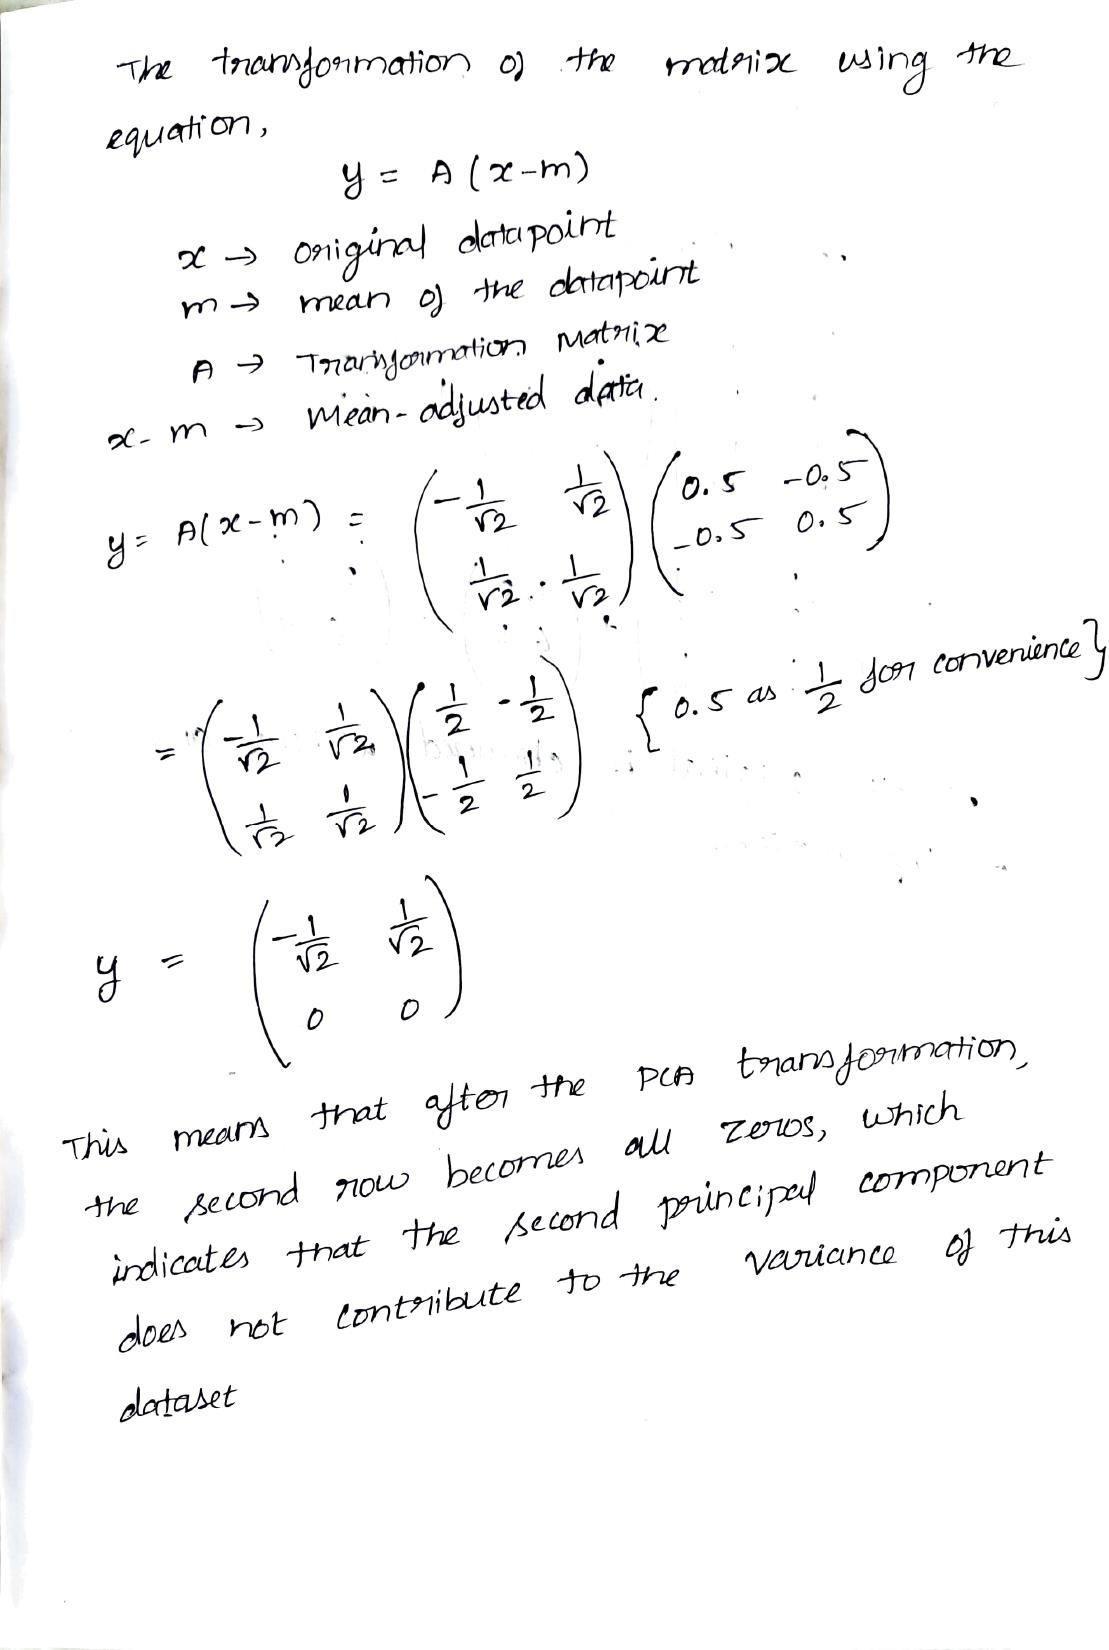 The transformation of the matrix using the
equation,
y = A (x-m)
x → original datapoint
m → mean of the datapoint
A → Transformation Matrix
x-m → Mean-adjusted data.
y = A(x-m) = ( -1/√2 1/√2 ; 1/√2 1/√2 ) ( 0.5 -0.5 ; -0.5 0.5 )
= ( -1/√2 1/√2 ; 1/√2 1/√2 ) ( 1/2 -1/2 ; -1/2 1/2 ) { 0.5 as 1/2 for convenience }
y = ( -1/√2 1/√2 ; 0 0 )
This means that after the PCA transformation,
the second row becomes all zeros, which
indicates that the second principal component
does not contribute to the variance of this
dataset